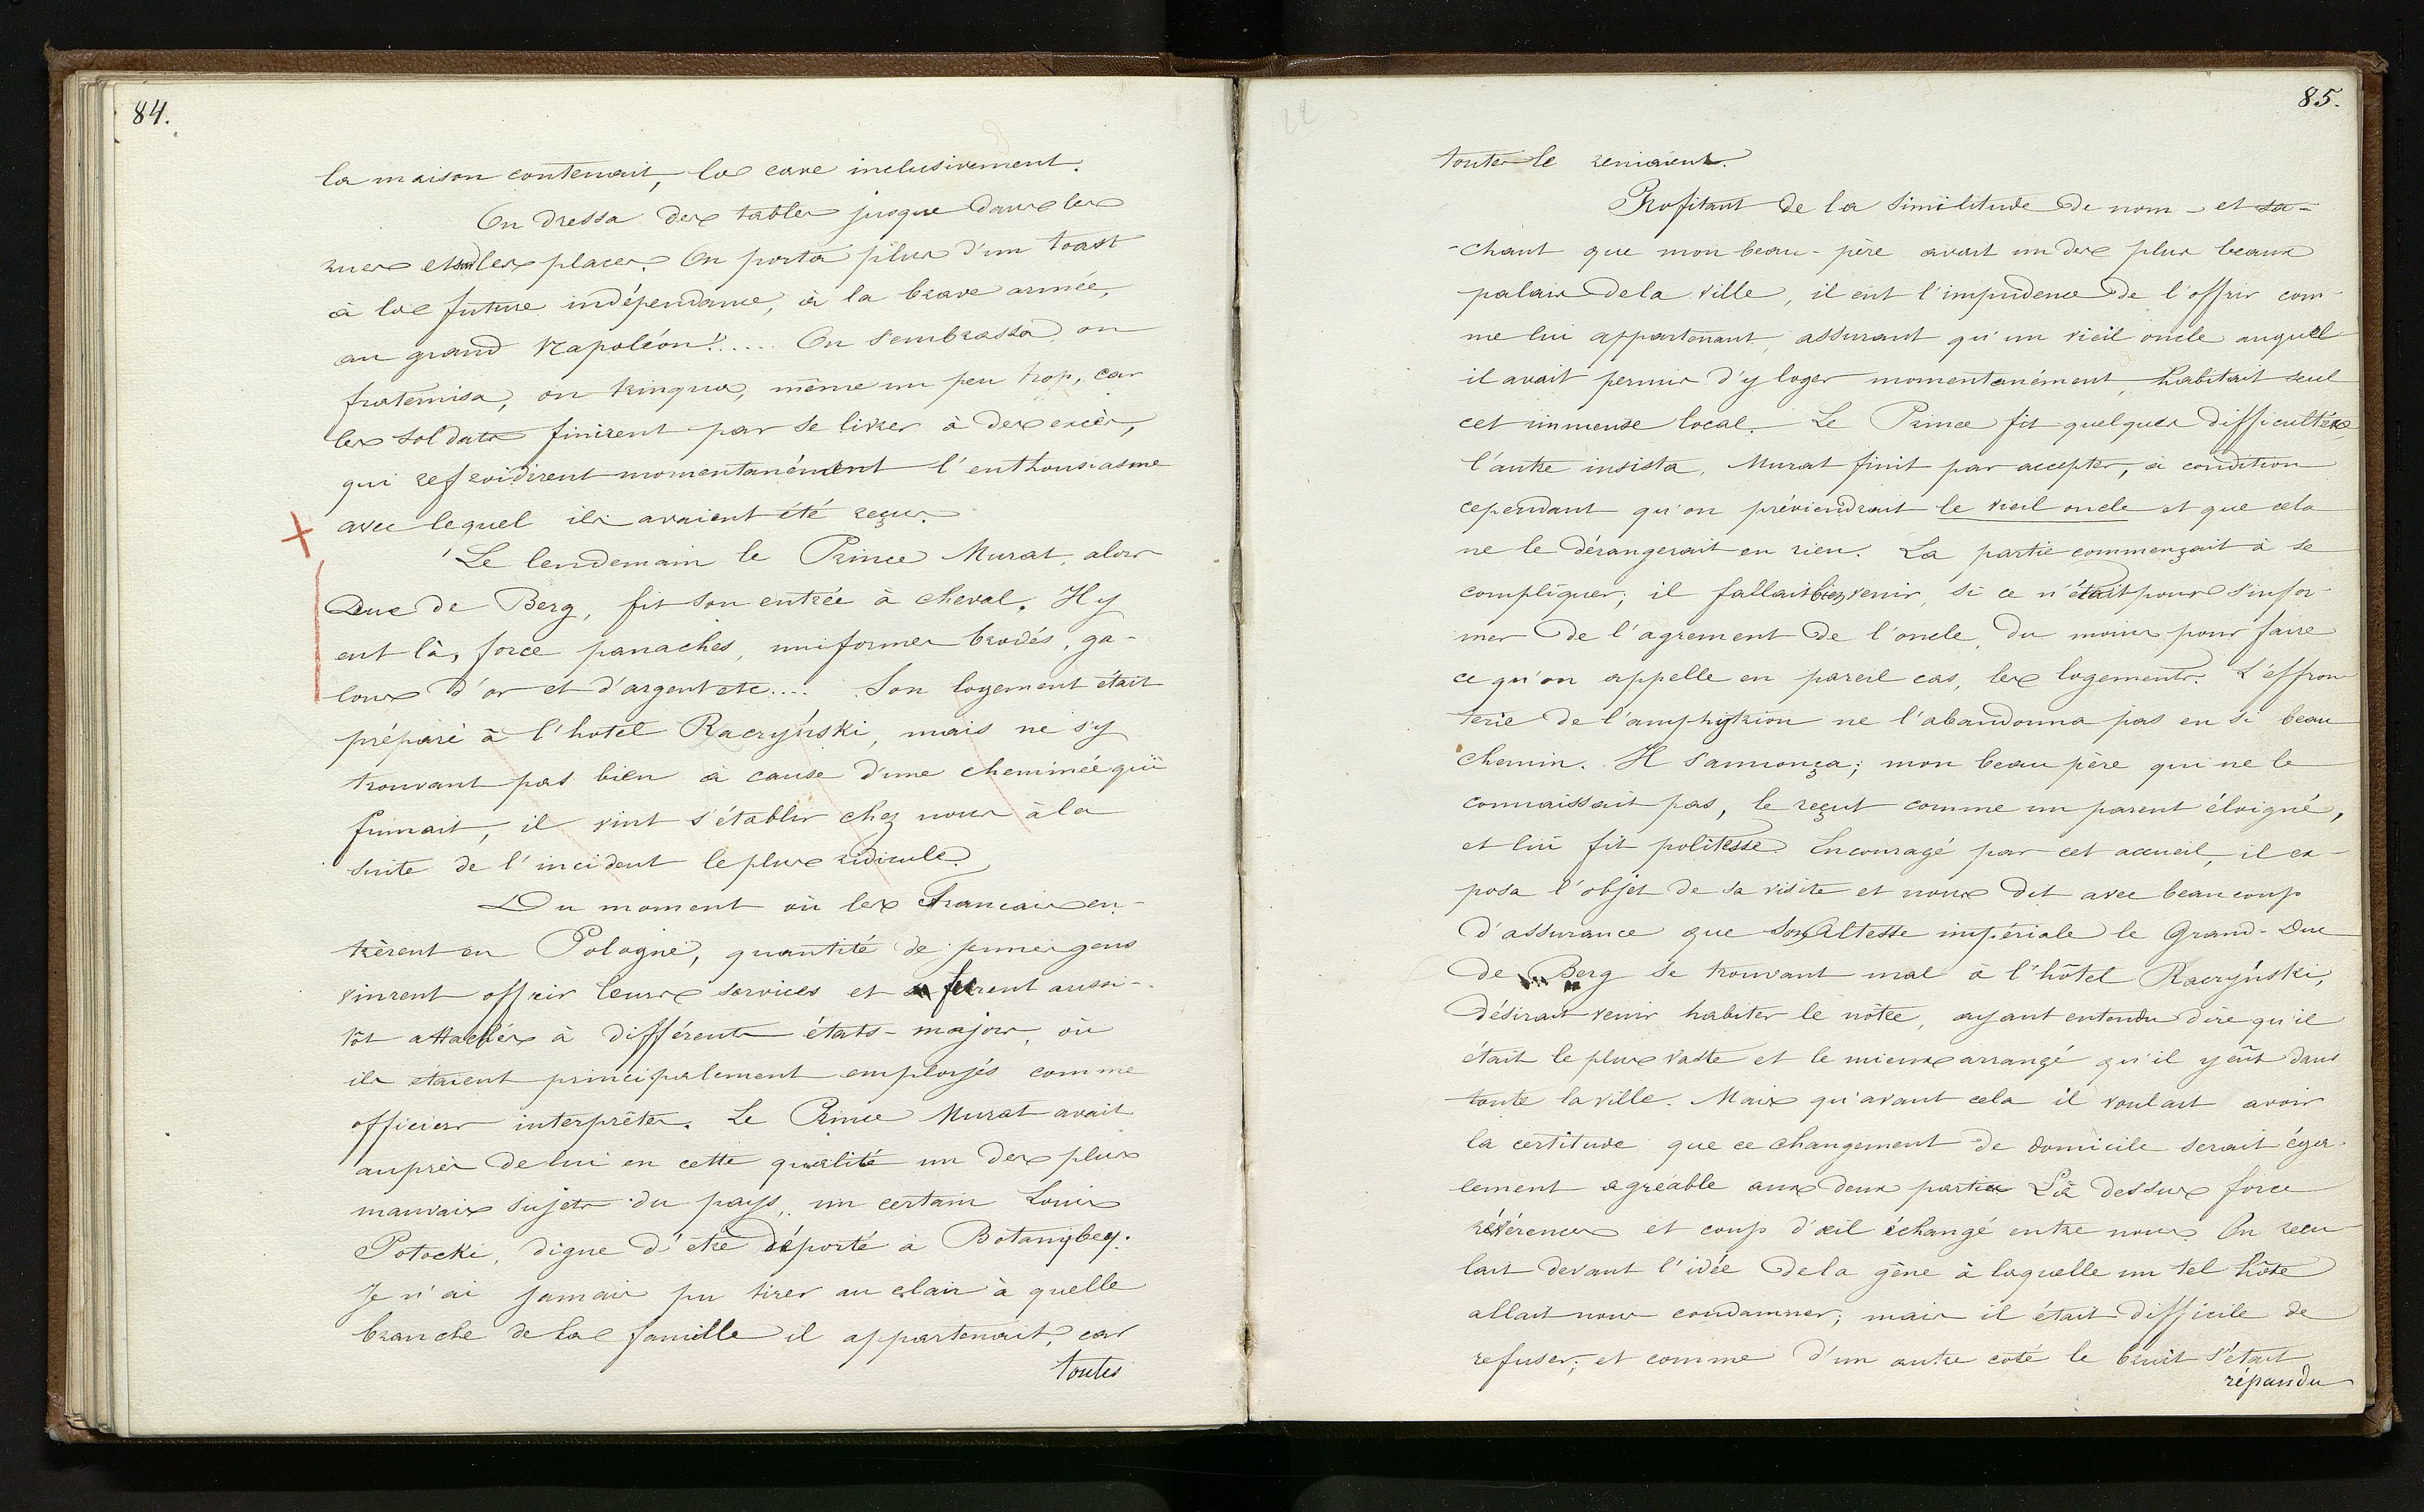 84.
la maison contenait, la cave inclusivement.
On dressa des tables jusque dans les
rues et sur les places. On porta plus d'un toast
à la future indépendance, à la brave armée,
au grand Napoléon!..... On s'embrassa, on
fraternisa, on trinqua, même un peu trop, car
les soldats finirent par se livrer à des excès,
qui refroidirent momentanément l'enthousiasme
avec lequel ils avaient été reçus.
Le lendemain le Prince Murat, alors
Duc de Berg, fit son entrée à cheval. Il y
eut là, force panaches, uniformes brodés, ga-
lons d'or et d'argent etc.... Son logement était
préparé à l'hotel Raczyński, mais ne s'y
trouvant pas bien à cause d'une cheminée qui
fumait, il vint s'établir chez nous à la
suite de l'incident le plus ridicule.
Du moment où les Francais en-
trèrent en Pologne, quantité de jeunes gens
vinrent offrir leurs services et furent aussi-
tôt attachés à différents états-majors, où
ils étaient principalement employés comme
officiers interprêtes. Le Prince Murat avait
auprès de lui en cette qualité un des plus
mauvais sujets du pays, un certain Louis
Potocki, digne d'être déporté à Botanybey.
Je n'ai jamais pu tirer au clair à quelle
branche de la famille il appartenait, car
toutes
85.
toutes le reniaient.
Profitant de la similitude de nom - et sa-
-chant que mon beau-père avait un des plus beaux
palais de la ville, il eut l'impudence de l'offrir com-
me lui appartenant, assurant qu'un vieil oncle auquel
il avait permis d'y loger momentanément, habitait seul
cet immense local. Le Prince fit quelques difficultés,
l'autre insista, Murat finit par accepter, à condition
cependant qu'on préviendrait le vieil oncle et que cela
ne le dérangerait en rien. La partie commençait à se
compliquer; il fallait bien venir, si ce n'était pour s'infor-
mer de l'agrement de l'oncle, du moins pour faire
ce qu'on appelle en pareil cas, les logements. L'effron
terie de l'amphytrion ne l'abandonna pas en si beau
chemin. Il s'annonça; mon beau père qui ne le
connaissait pas, le reçut comme un parent éloigné,
et lui fit politesse. Encouragé par cet accueil, il ex-
posa l'objet de sa visite et nous dit avec beaucoup
d'assurance que Son Altesse impériale le Grand-Duc
de Berg se trouvant mal à l'hôtel Raczyński,
désirait venir habiter le nôtre, ayant entendu dire qu'il
était le plus vaste et le mieux arrangé qu'il y eût dans
toute la ville. Mais qu'avant cela il voulait avoir
la certitude que ce changement de domicile serait éga-
lement agréable aux deux parties. Là dessus force
révérences et coup d'œil échangé entre nous. On recu
lait devant l'idée de la gêne à laquelle un tel hôte
allait nous condamner; mais il était difficile de
refuser; et comme d'un autre coté le bruit s'était
répandu